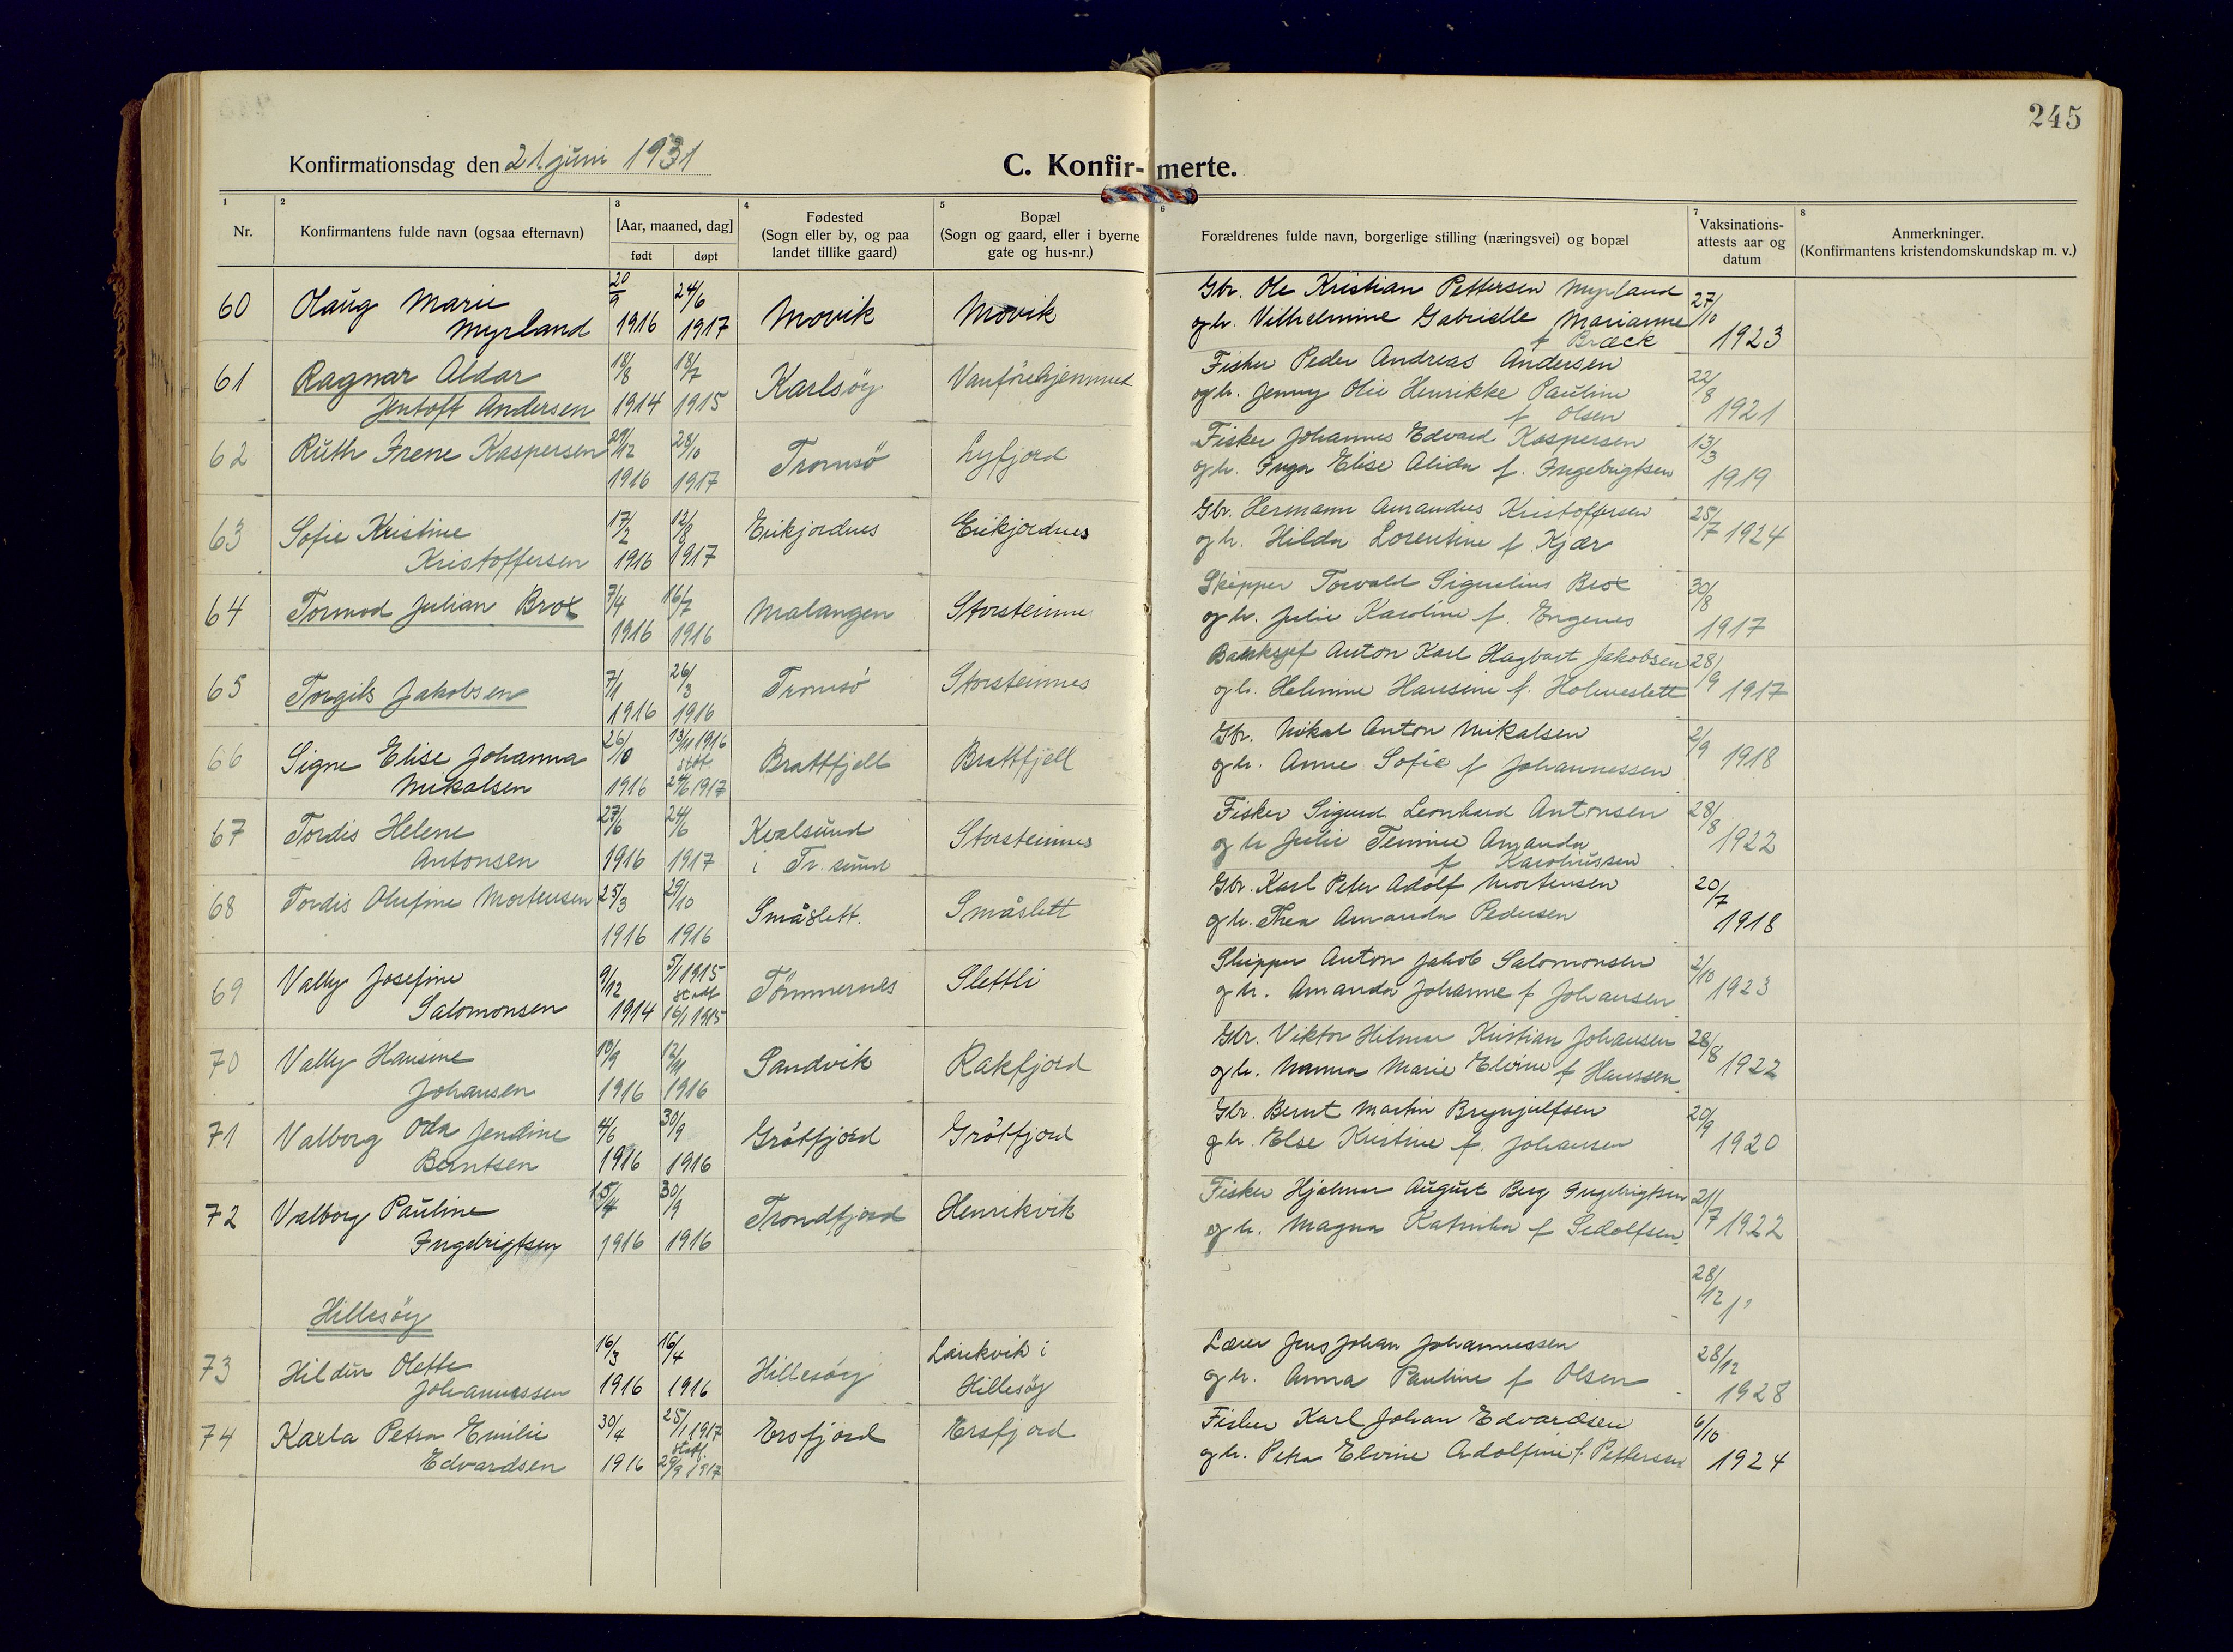 245
Konfirmationsdag den 21 juni 1931
C. Konfir- merte.
1 2 3 4 5 6 7 8
Nr.
Konfirmantens fulde navn (ogsaa efternavn)
[Aar, maaned, dag]
født døpt
Fødested
(Sogn eller by, og paa
landet tillike gaard)
Bopæl
(Sogn og gaard, eller i byerne
gate og hus-nr.)
Forældrenes fulde navn, borgerlige stilling (næringsvei) og bopæl
Vaksinations-
attests aar og
datum
Anmerkninger.
(Konfirmantens kristendomskundskap m. v.)
60 Olaug Marie 20/9 24/6 Movik Movik Gbr. Ole Kristian Pettersen Myrland 27/10
Myrland 1916 1917 og h. Vilhelmine Gabrielle Marianne
f Bræck 1923
61 Ragnar Aldar 18/8 18/7 Karlsöy Vanförehjemmet Fisker Peder Andreas Andersen 22/8
Jentoft Andersen 1914 1915 og h. Jenny Olie Henrikke Pauline
f Olsen 1921
62 Ruth Irene Kaspersen 29/12 28/10 Tromsö Lyfjord Fisker Johannes Edvard Kaspersen 13/3
1916 1917 og h. Inga Elise Alida f. Ingebrigtsen 1919
63 Sofie Kristine 17/2 12/8 Eikjordnes Eikjordnes Gbr. Hermann Amandus Kristoffersen 25/7 1924
Kristoffersen 1916 1917 og h. Hilda Lorentine f. Kjær
64 Tormod Julian Brox 7/4 16/7 Malangen Storsteinne Skipper Torvald Signelius Brox 30/8
1916 1916 og h. Julie Karoline f. Engenes 1917
65 Torgils Jakobsen 7/1 26/3 Tromsö Storsteinnes Banksjef Anton Karl Hagbart Jakobsen 28/9 1917
1916 1916 og h. Helmine Hansine f. Holmeslett
66 Signe Elise Johanna 26/10 13/11 1916 Brattfjell Brattfjell Gbr. Mikal Anton Mikalsen 2/9 1918
stdf.
Mikalsen 1916 24/6 1917 og h. Anne Sofie f Johannessen
67 Tordis Helene 27/6 24/6 Kvalsund Storsteinnes Fisker Sigurd Leonhard Antonsen 28/8 1922
Antonsen 1916 1917 i Tr. sund og h Julie Amanda
f Karoliussen
68 Tordis Olufine Mortensen 25/3 29/10 Småslett. Småslett Gbr. Karl Peter Adolf Mortensen 20/7
1916 1916 og h. Thea Amanda Pedersen 1918
69 Vally Josefine 9/12 5/1 1915 Tömmernes Slettli Skipper Anton Jakob Salomonsen 2/10 1923
stadf
Salomonsen 1914 16/1 1915 og h. Amanda Johanne f Johansen
70 Vally Hansine 19/9 12/11 Sandvik Rakfjord Gbr. Viktor Hilmar Kristian Johansen 28/8 1922
Johansen 1916 1916 og h. Nanna Marie Elvine f Hanssen
71 Valborg Oda Jendine 4/6 30/9 Grötfjord Grötfjord Gbr. Bernt Martin Brynjulfsen 20/9
Berntsen 1916 1916 og h. Else Kristine f. Johansen 1920
72 Valborg Pauline 15/4 30/9 Trondfjord Henrikvik Fisker Hjalmar August Berg Ingebrigtsen 21/7 1922
Ingebrigtsen 1916 1916 og h. Magna Katinka f Sedolfsen
28/12
Hillesöy
73 Hildur Olette 16/3 16/4 Hillesöy Laukvik i Lærer Jens Johan Johannessen 28/12
Johannessen 1916 1916 Hillesöy og h. Anna Pauline f Olsen 1928
74 Karla Petra Emilie 30/4 25/1 1917 Ersfjord Ersfjord Fisker Karl Johan Edvardsen 6/10
stadf.
Edvardsen 1916 29/9 1917 og h. Petra Elvine Adolfine f. Pettersen 1924